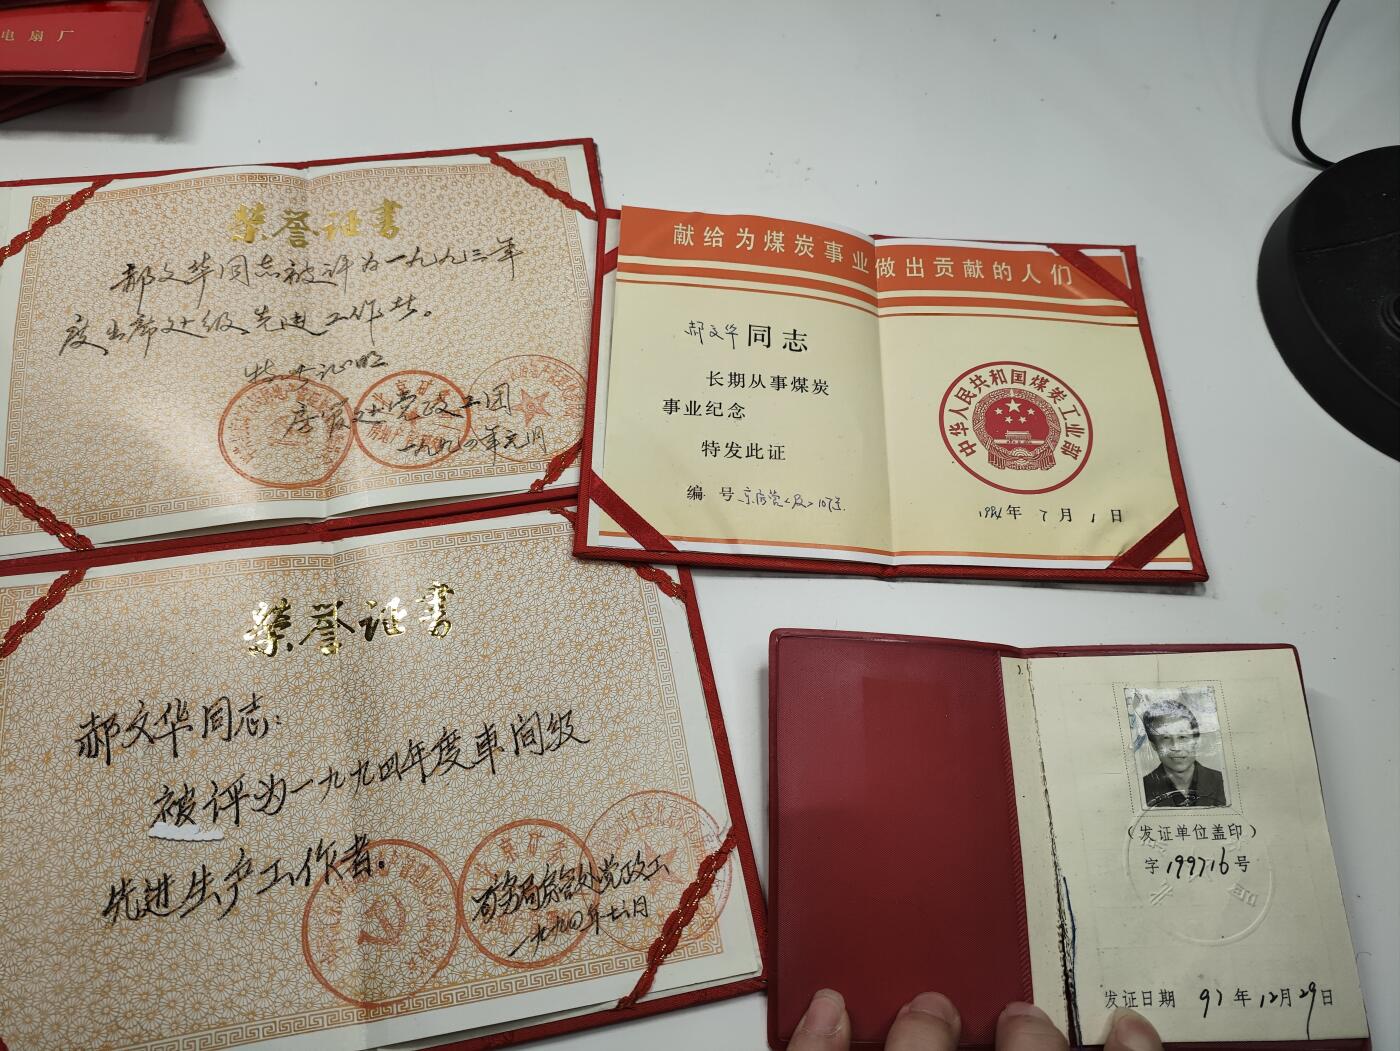 电扇厂
荣誉证书
郝文华同志被评为一九九三年
度出席处级先进工作者。
特此证明
房管处党政工团
一九九四年元月
献给为煤炭事业做出贡献的人们
郝文华同志
长期从事煤炭
事业纪念
特发此证
编号
中华人民共和国煤炭工业部
1986年7月1日
荣誉证书
郝文华同志：
被评为一九九四年度车间级
先进生产工作者。
矿务局房管处党政工
一九九四年十二月
（发证单位盖印）
字199716号
发证日期 97年12月29日